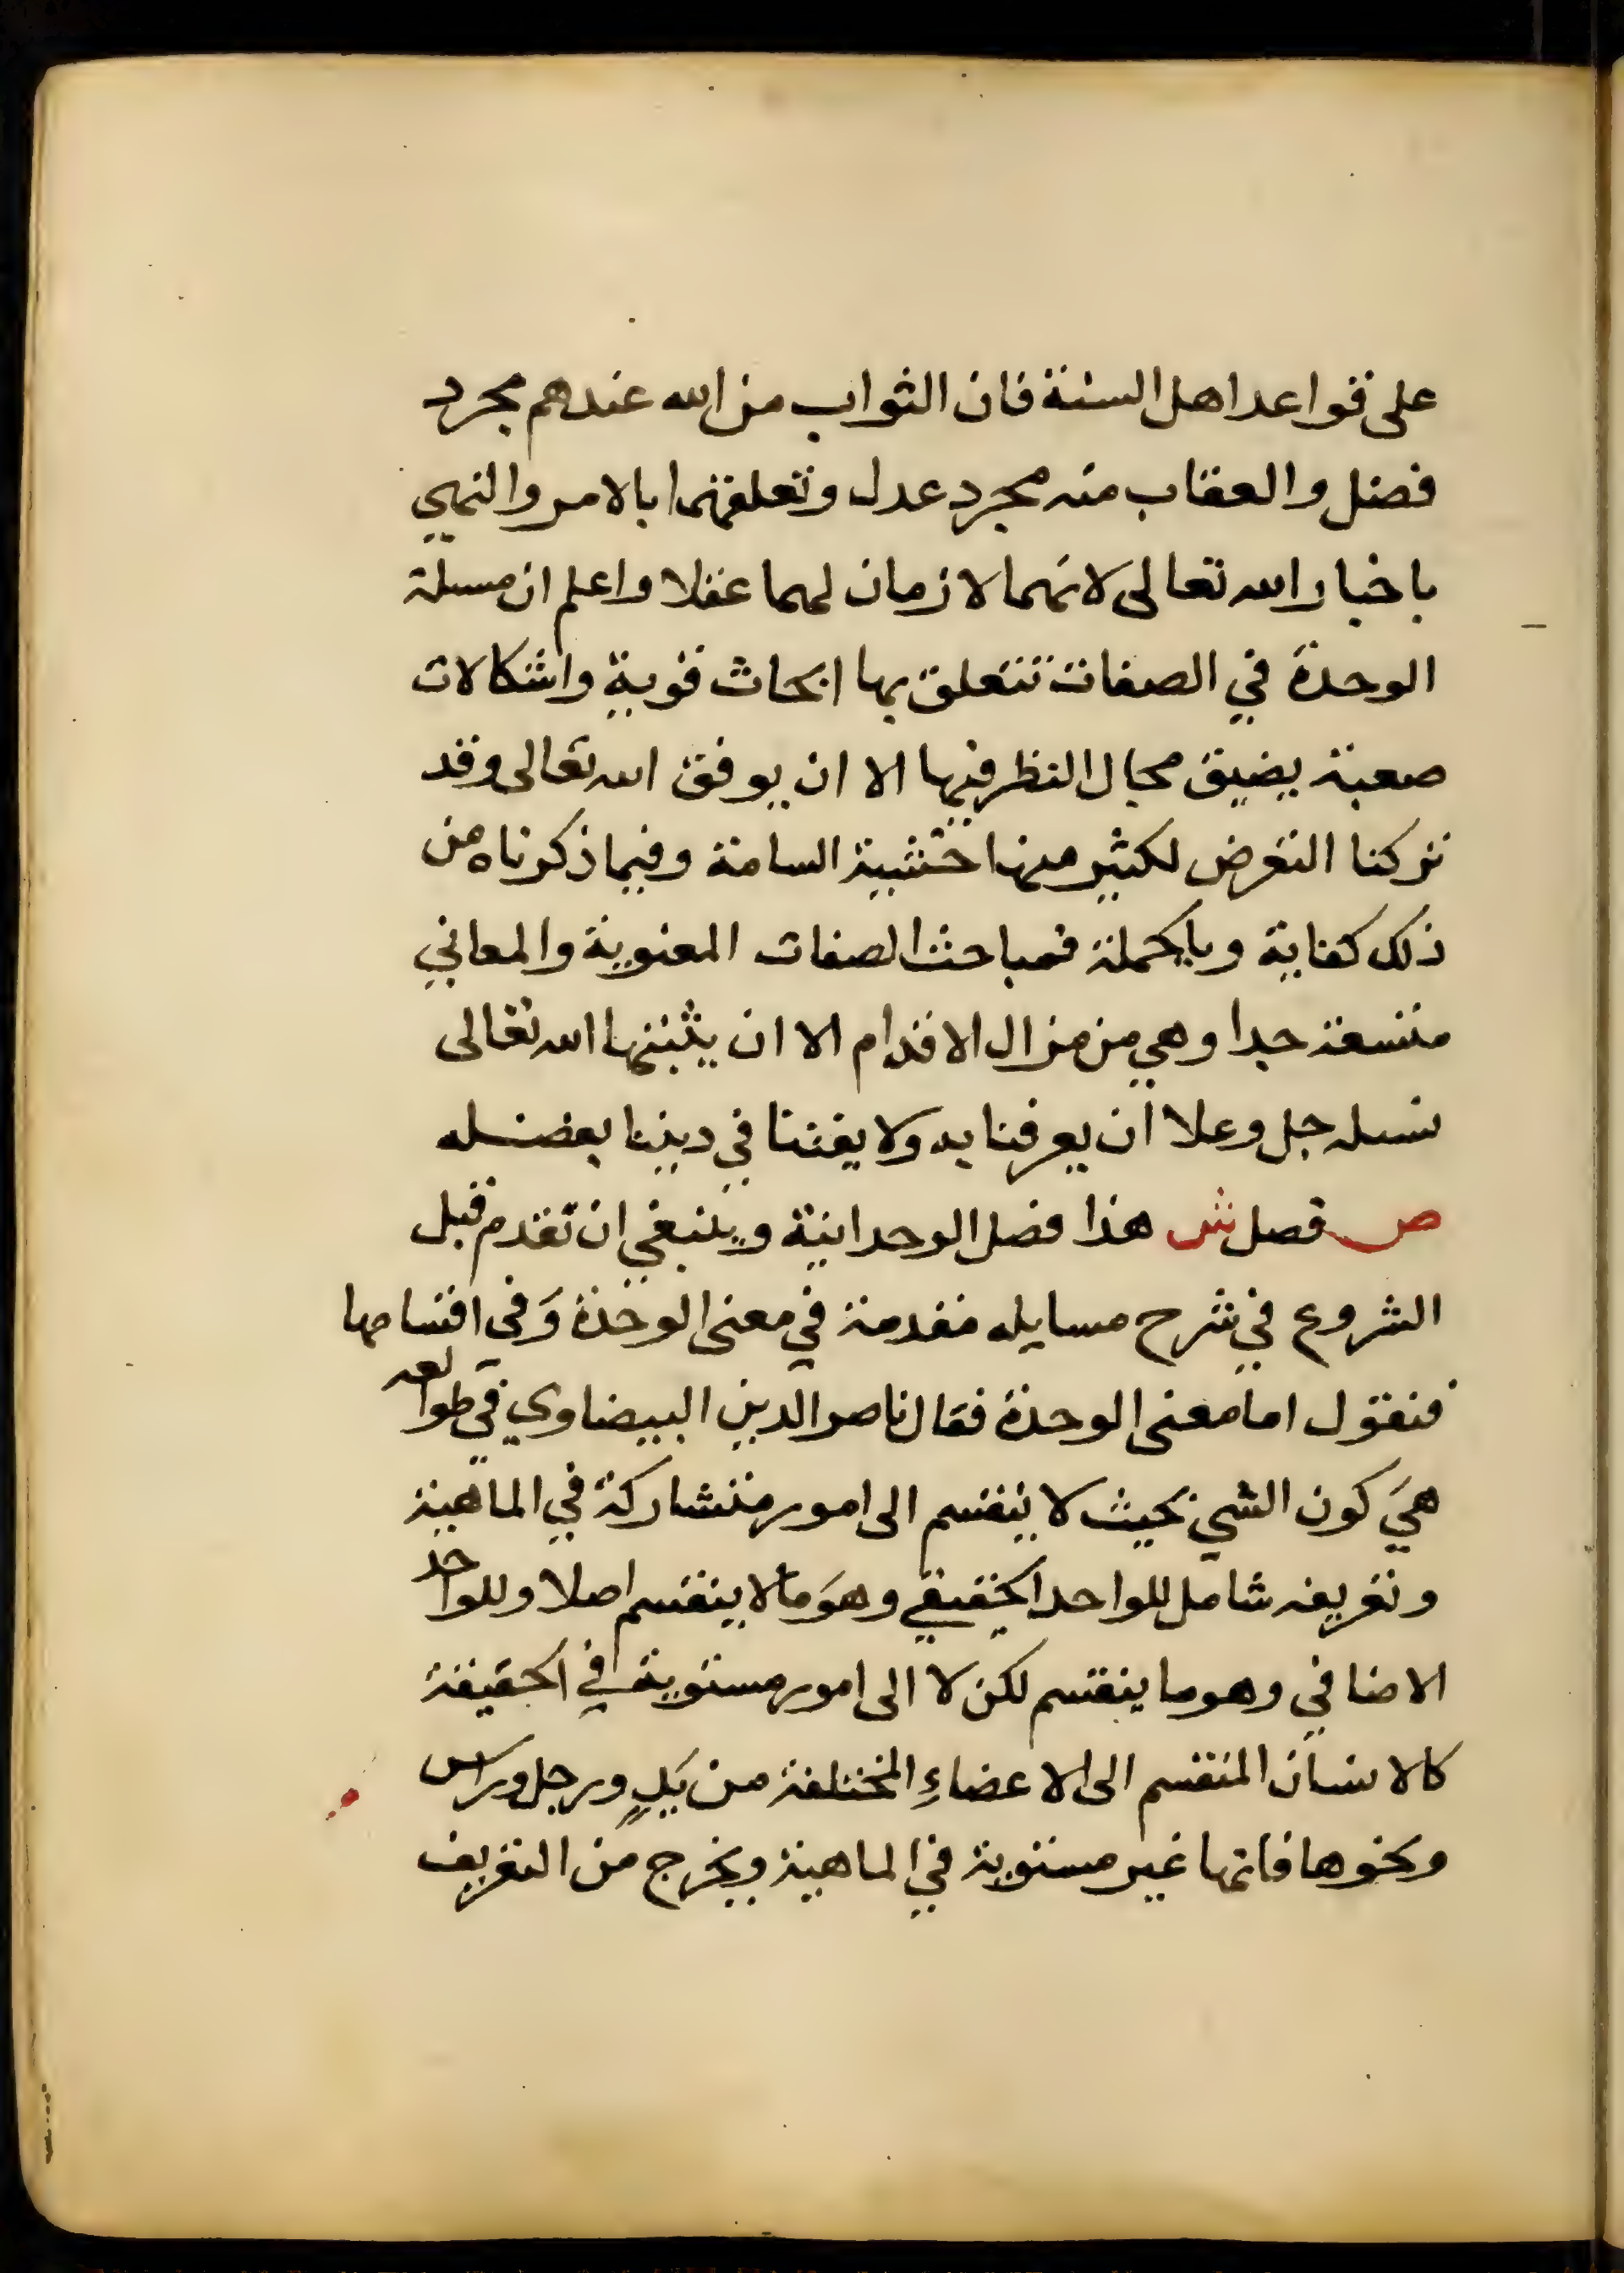 على قواعد اهل السنة فان الثواب من الله عندهم مجرد
فضل والعقاب منه مجرد عدل وتعلقهما بالامر والنهي
باخبار الله تعالى لانهما لازمان لهما عقلا واعلم ان مسلة
الوحدة في الصفات تتعلق بها ابحاث قوية واشكالات
صعبة يضيق مجال النظر فيها الا ان يوفق الله تعالى وقد
تركنا التعرض لكثير منها خشية السامة وفيما ذكرناه من
ذلك كفاية وبالجملة فمباحث الصفات المعنوية والمعاني
متسعة جدا وهي من مزال الاقدام الا ان يثبتها الله تعالى
نسله جل وعلا ان يعرفنا به ولا يفتنا في ديننا بفضله
ص فصل ش هذا فصل الوحدانية وينبغي ان تقدم قبل
الشروع في شرح مسايله مقدمة في معنى الوحدة وَفي اقسامها
فنقول اما معنى الوحدة فقال ناصر الدين البيضاوي في طوالعه
هيَ كون الشي بحيث لا ينقسم الى امور متشاركة في الماهية
وتعريفه شامل للواحد الحقيقي وهوَ ما لا ينقسم اصلا وللواحد
الاضافي وهو ما ينقسم لكن لا الى امور مستوية في الحقيقة
كالانسان المنقسم الى الاعضاءِ المختلفة من يَدٍ ورجل وراس
ونحوها فانها غير مستوية في الماهية ويخرج من التعريف